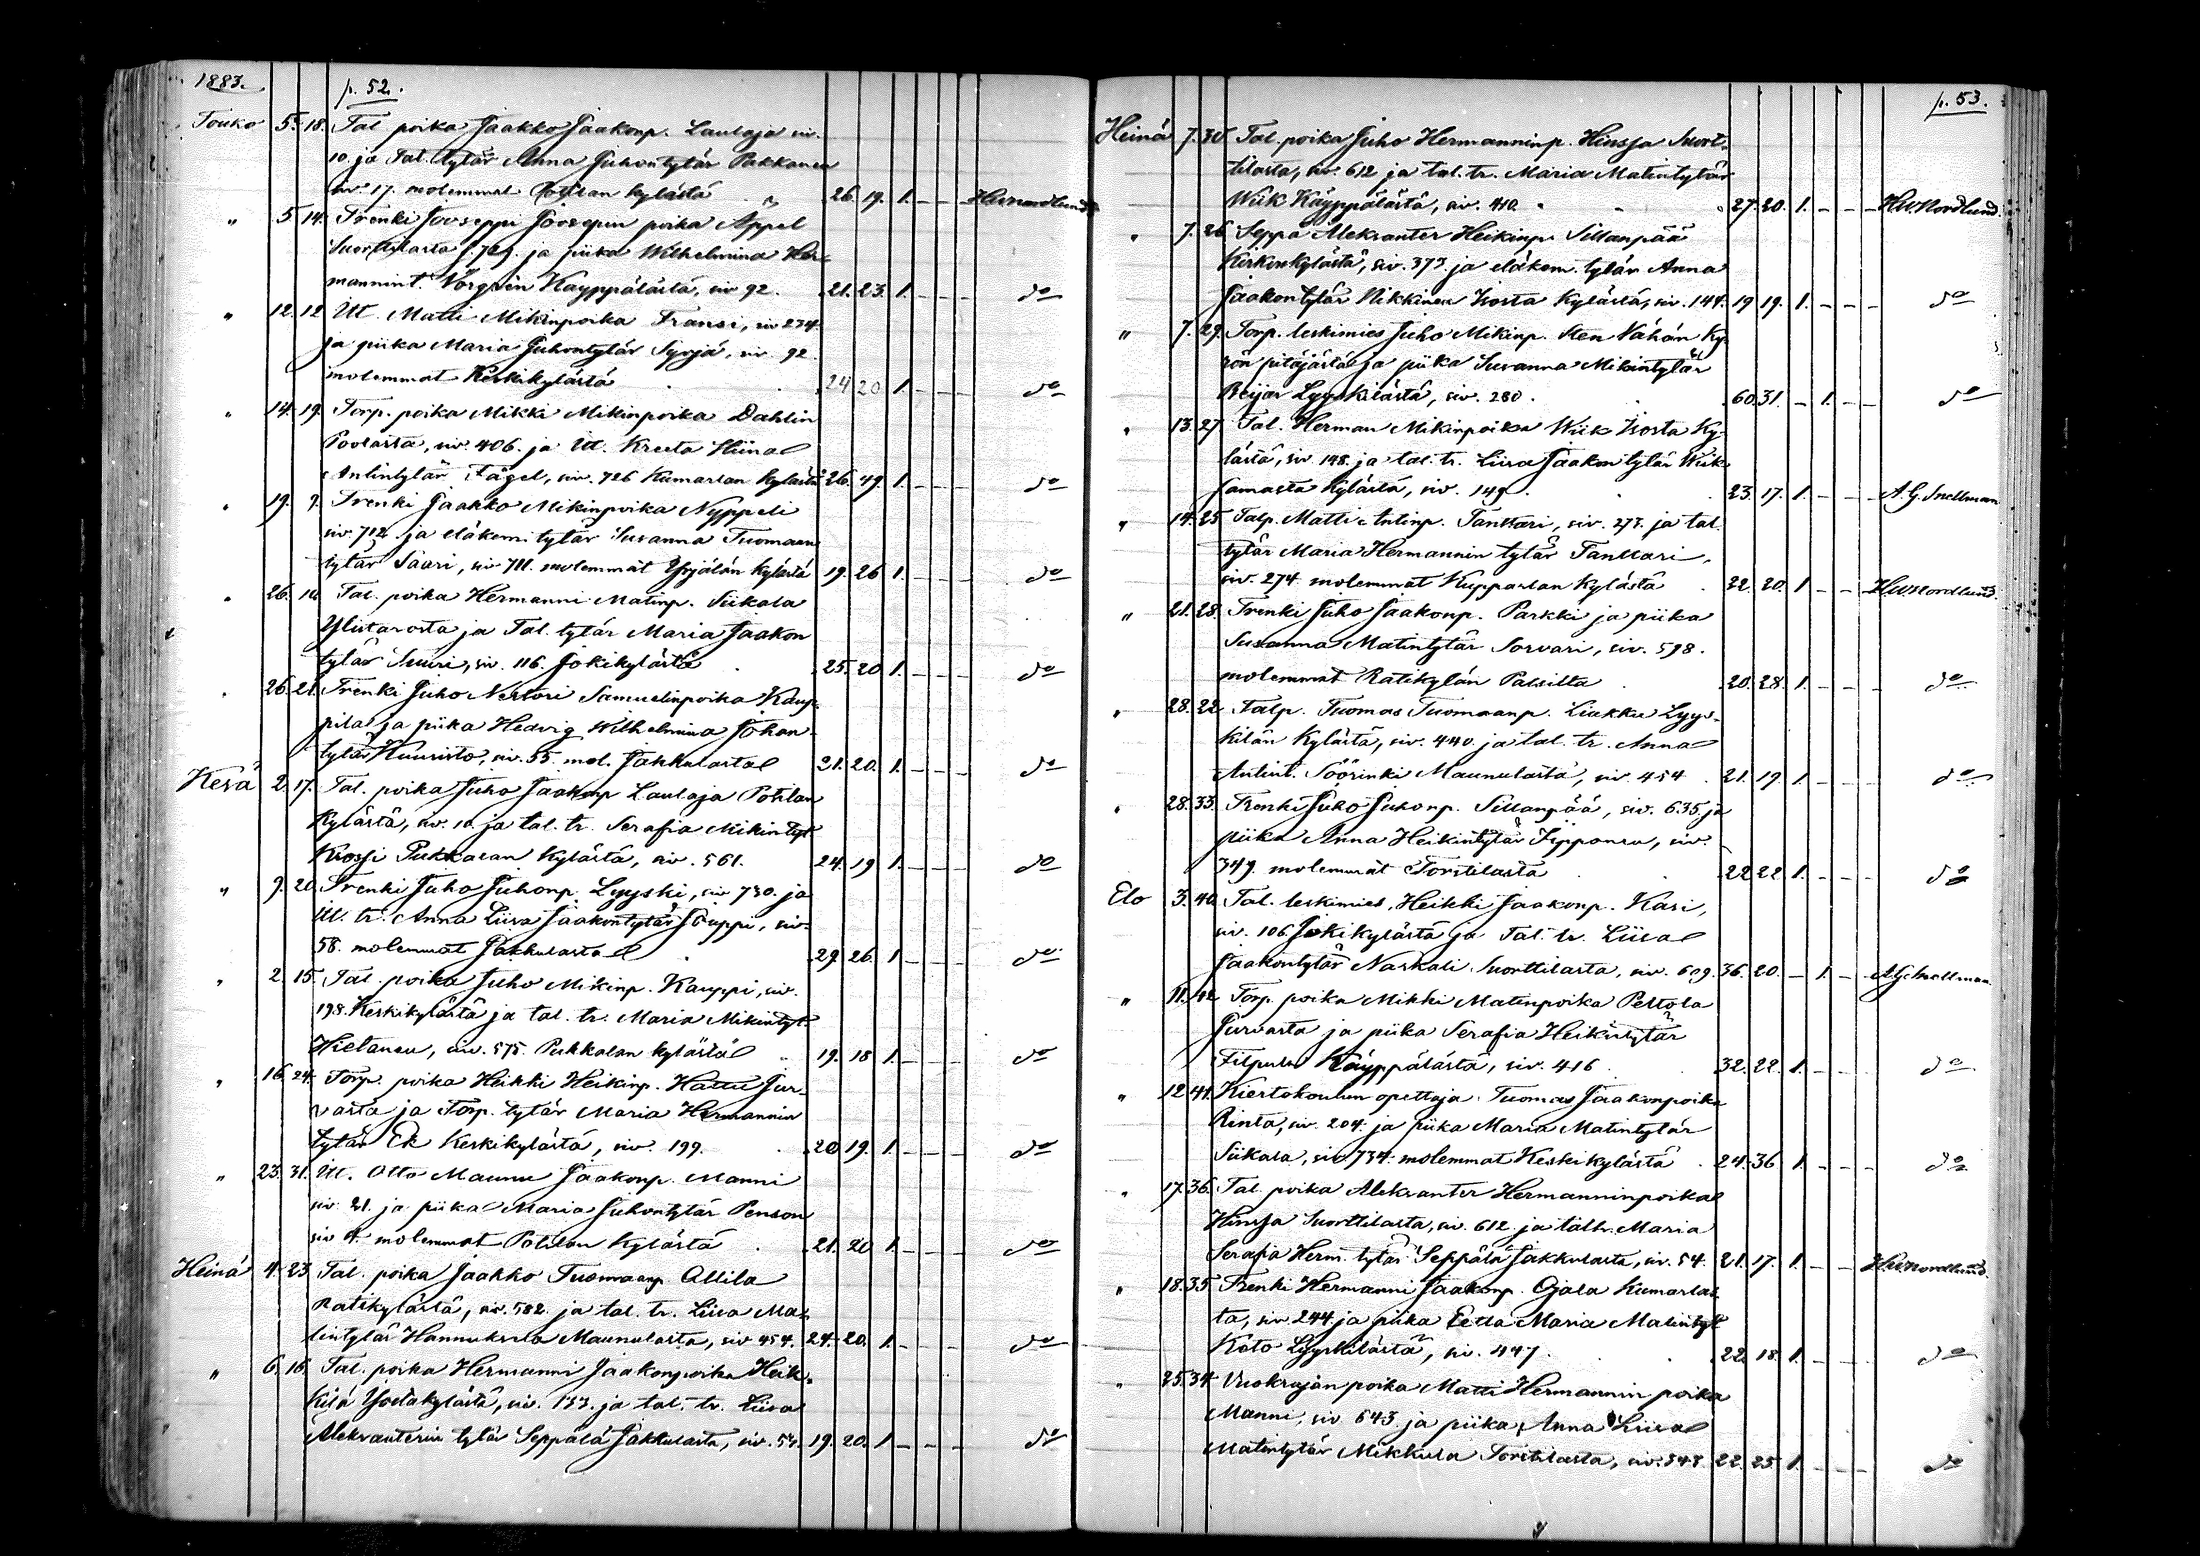 1883.
p. 52.
Touko 5. 18. Tal. poika Jaakko Jaakonp. Laulaja siv.
10. ja Tal. tytär Anna Juhontytär Pakkanen
siv. 17. molemmat Pohtan kylästä 26. 19. 1. – – – HWnordlund
" 5. 14. Trenki Jooseppi Joosepin poika Äppel
Suorttilasta s. 729. ja piika Wilhelmina Her-
mannint. Norgrén Käyppälästä, siv 92. 21. 23. 1. – – – do
" 12. 12. Itl. Matti Mikinpoika Fransi, siv 234.
ja piika Maria Juhontytär Syrjä, siv. 92.
molemmat Keskikylästä 24 20 1. – – – do
" 14. 19. Torp. poika Mikki Mikinpoika Dahlin
siv. 406. ja itl. Kreeta Hiina
Antintytär Fågel, siv. 726 Kumarlan kylästä 26. 49. 1. – – – do
" 19. 9. Trenki Jaakko Mikinpoika Nyppeli
siv. 712 ja eläkem. tytär Susanna Tuomaan
tytär Saari, siv 711. molemmat Yrjälän kylästä 19. 26 1. – – – do
" 26. Tal. poika Hermanni Matinp. Siikala
Ylistarosta ja Tal. tytär Maria Jaakon
tytär Suuri, siv. 116. Jokikylästä 25. 20 1. – – – do
" 26. 21. Trenki Juho Nestori Samuelinpoika Kaup-
pila ja piika Hedvig Wilhelmina Johan
tytär Kuusisto, siv. 55. mol. Jakkulasta 21. 20. 1. – – – do
Kesä 2. 17. Tal. poika Juho Jaakonp Laulaja Pohtan
kylästä, siv. 10. ja tal. tr. Serafia Mikintyt.
Krossi Pukkalan kylästä, siv. 561. 24. 19 1. – – – do
" 9. 20. Trenki Juho Juhonp. Lyyski, siv 730. ja
itl. tr. Anna Liisa Jaakontytär siv.
58. molemmat Jakkulasta 29. 26. 1. – – – do
" 2. 15. Tal. poika Juho Mikinp. Kauppi, siv.
198. Keskikylästä ja tal. tr. Maria Mikintyt.
Hietanen, siv. 575. Pukkalan kylästä 19. 18 1. – – – do
" 16. 24. Torp. poika Heikki Heikinp. Hattu Jur-
vasta ja Torp. tytär Maria Hermannin
tytär Ek Keskikylästä, siv. 199. 20 19. 1. – – – do
" 23. 31. Itl. Otto Maunu Jaakonp. Manni
siv. 21. ja piika Maria Juhontytär Penson
siv 4. molemmat Pohtan kylästä 21. 20 1. – – – do
Heinä 4. 23 Tal. poika Jaakko Tuomaanp Ollila
Ratikylästä, siv. 582. ja tal. tr. Liisa Ma-
tintytär Hannuksela Maunulasta, siv 454. 24. 20. 1. – – – do
" 6. 16. Tal. poika Hermanni Jaakonpoika Heik-
kilä siv. 153. ja tal. tr. Liisa
Aleksanterin tytär Seppälä Jakkulasta, siv. 54. 19. 20. 1 – – – do
p. 53.
Heinä 7. 30. Tal. poika Juho Hermanninp. Hinssa Suort-
tilasta, siv. 612 ja tal. tr. Maria Matintytär
Wiik Käyppälästä, siv. 410. 27. 20. 1. – – – HWNordlund.
" 7. 26 Seppä Aleksanter Heikinp. Sillanpää
Kirkonkylästä, siv. 373. ja eläkem. tytär Anna
Jaakontytär Nikkinen Isosta kylästä, siv. 144. 19 19. 1. – – – do
" 7. 29. Torp. leskimies Juho Mikinp. Sten Vähän Ky-
rön pitäjästä ja piika Susanna Mikintytär
Reijar Lyyskilästä, siv. 280. 60. 31. – 1. – – do
" 13. 27. Tal. Herman Mikinpoika Wiik Isosta Ky-
lästä, siv. 148. ja tal. tr. Liisa Jaakontytär Wiik
samasta kylästä, siv. 149. 23. 17. 1. – – – A. G. Snellman
" 14. 25 Talp. Matti Antinp. Tanttari, siv. 273. ja tal.
tytär Maria Hermannin tytär Tanttari,
siv. 274. molemmat Kupparlan kylästä 22. 20. 1 – – HWNordlund.
" 21. 28. Trenki Juho Jaakonp. Parkki ja piika
Susanna Matintytär Sorvari, siv. 598.
molemmat Ratikylän Palsilta 20. 28. 1. – – – do
" 28. 22. Talp. Tuomas Tuomaanp. Liukku Lyys-
kilän kylästä, siv. 440. ja tal. tr. Anna
Antint. Söörinki Maunulasta, siv. 454. 21. 19 1. – – – do
" 28. 33. Trenki Juho Juhonp. Sillanpää, siv. 635. ja
piika Anna Heikintytär siv.
349. molemmat Torstilasta 22 22 1. – – – do
Elo 3. 40. Tal. leskimies, Heikki Jaakonp. Kasi,
siv. 106. Jokikylästä ja Tal. tr. Liisa
Jaakontytär Naskali Suorttilasta, siv. 609. 36. 20. – 1. – AGSnellman.
" 11. 42. Torp. poika Mikki Matinpoika Peltola
Jurvasta ja piika Serafia Heikintytär
Filpula Käyppälästä, siv. 416 32. 22. 1. – – – do
" 12. 41. Kiertokoulun opettaja Tuomas Jaakonpoika
Rinta, siv. 204. ja piika Maria Matintytär
Siikala, siv 734. molemmat Keskikylästä 24. 36 1. – – – do
" 17. 36. Tal. poika Aleksanter Hermanninpoika
Hinssa Suorttilasta, siv. 612. ja tal. tr. Maria
Serafia Herm. tytär Seppälä Jakkulasta, siv. 54. 21. 17. 1. – – HWnordlund.
" 18. 35. Trenki Hermanni Jaakonp. Ojala Kumarlas-
ta, siv 244. ja piika Eeva Maria Matintyt.
Koto Lyyskilästä, siv. 447. 22. 18. 1. – – – do
" 25. 34. Vuokraajan poika Matti Hermannin poika
Manni, siv. 643. ja piika Anna Liisa
Matintytär Mikkula Torstilasta, siv. 22. 25. 1. – – – do